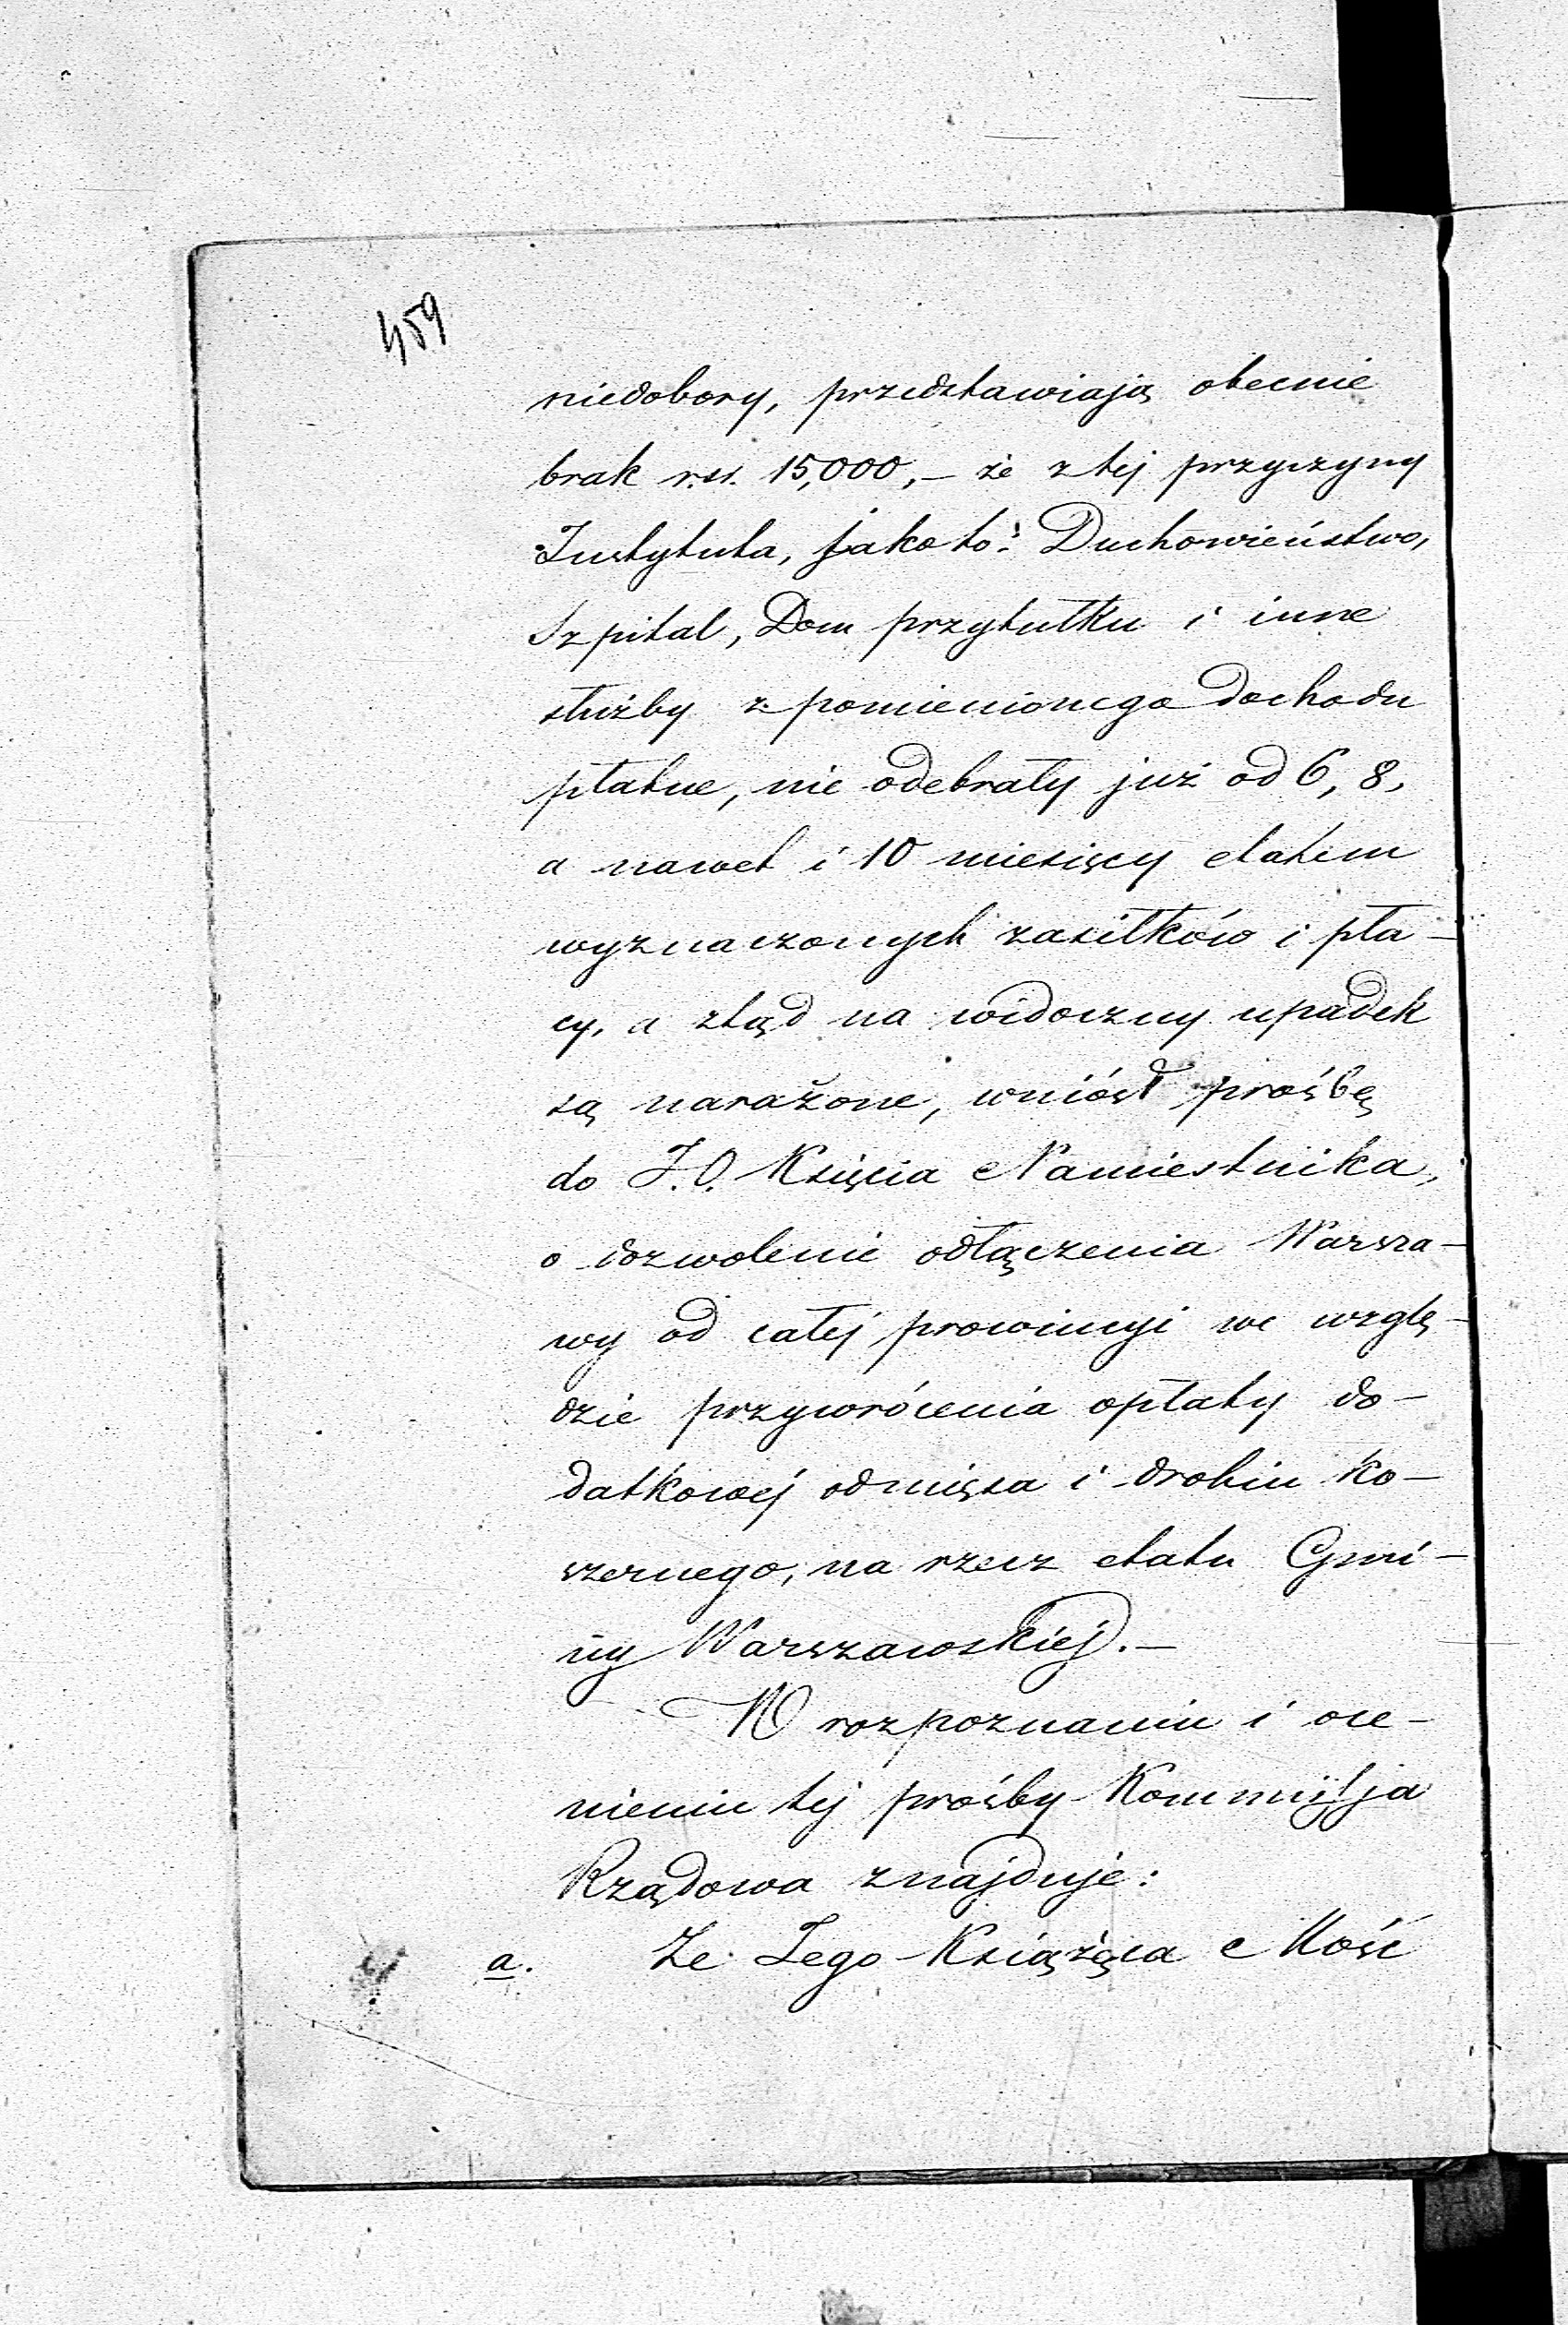 459
niedobory, przedstawiają obecnie
brak r.sr. 15,000,— że z tej przyczyny
Instytuta, jako to: Duchowieństwo,
Szpital, Dom przytułku i inne
służby z pomienionego dochodu
płatne, nie odebrały już od 6, 8,
a nawet i 10 miesięcy etatem
wyznaczonych zasiłków i pła—
cy, a ztąd na widoczny upadek
są narażone, wniósł prośbę
do J.O. Księcia Namiestnika,
o dozwolenie odłączenia Warsza—
wy od całej prowincyi we wzglę—
dzie przywrócenia opłaty do—
datkowej od mięsa i drobiu ko—
szernego, na rzecz etatu Gmi—
ny Warszawskiej.—
W rozpoznaniu i oce—
nieniu tej prośby Kommissja
Rządowa znajduje:
a. Że Jego Książęca Mość